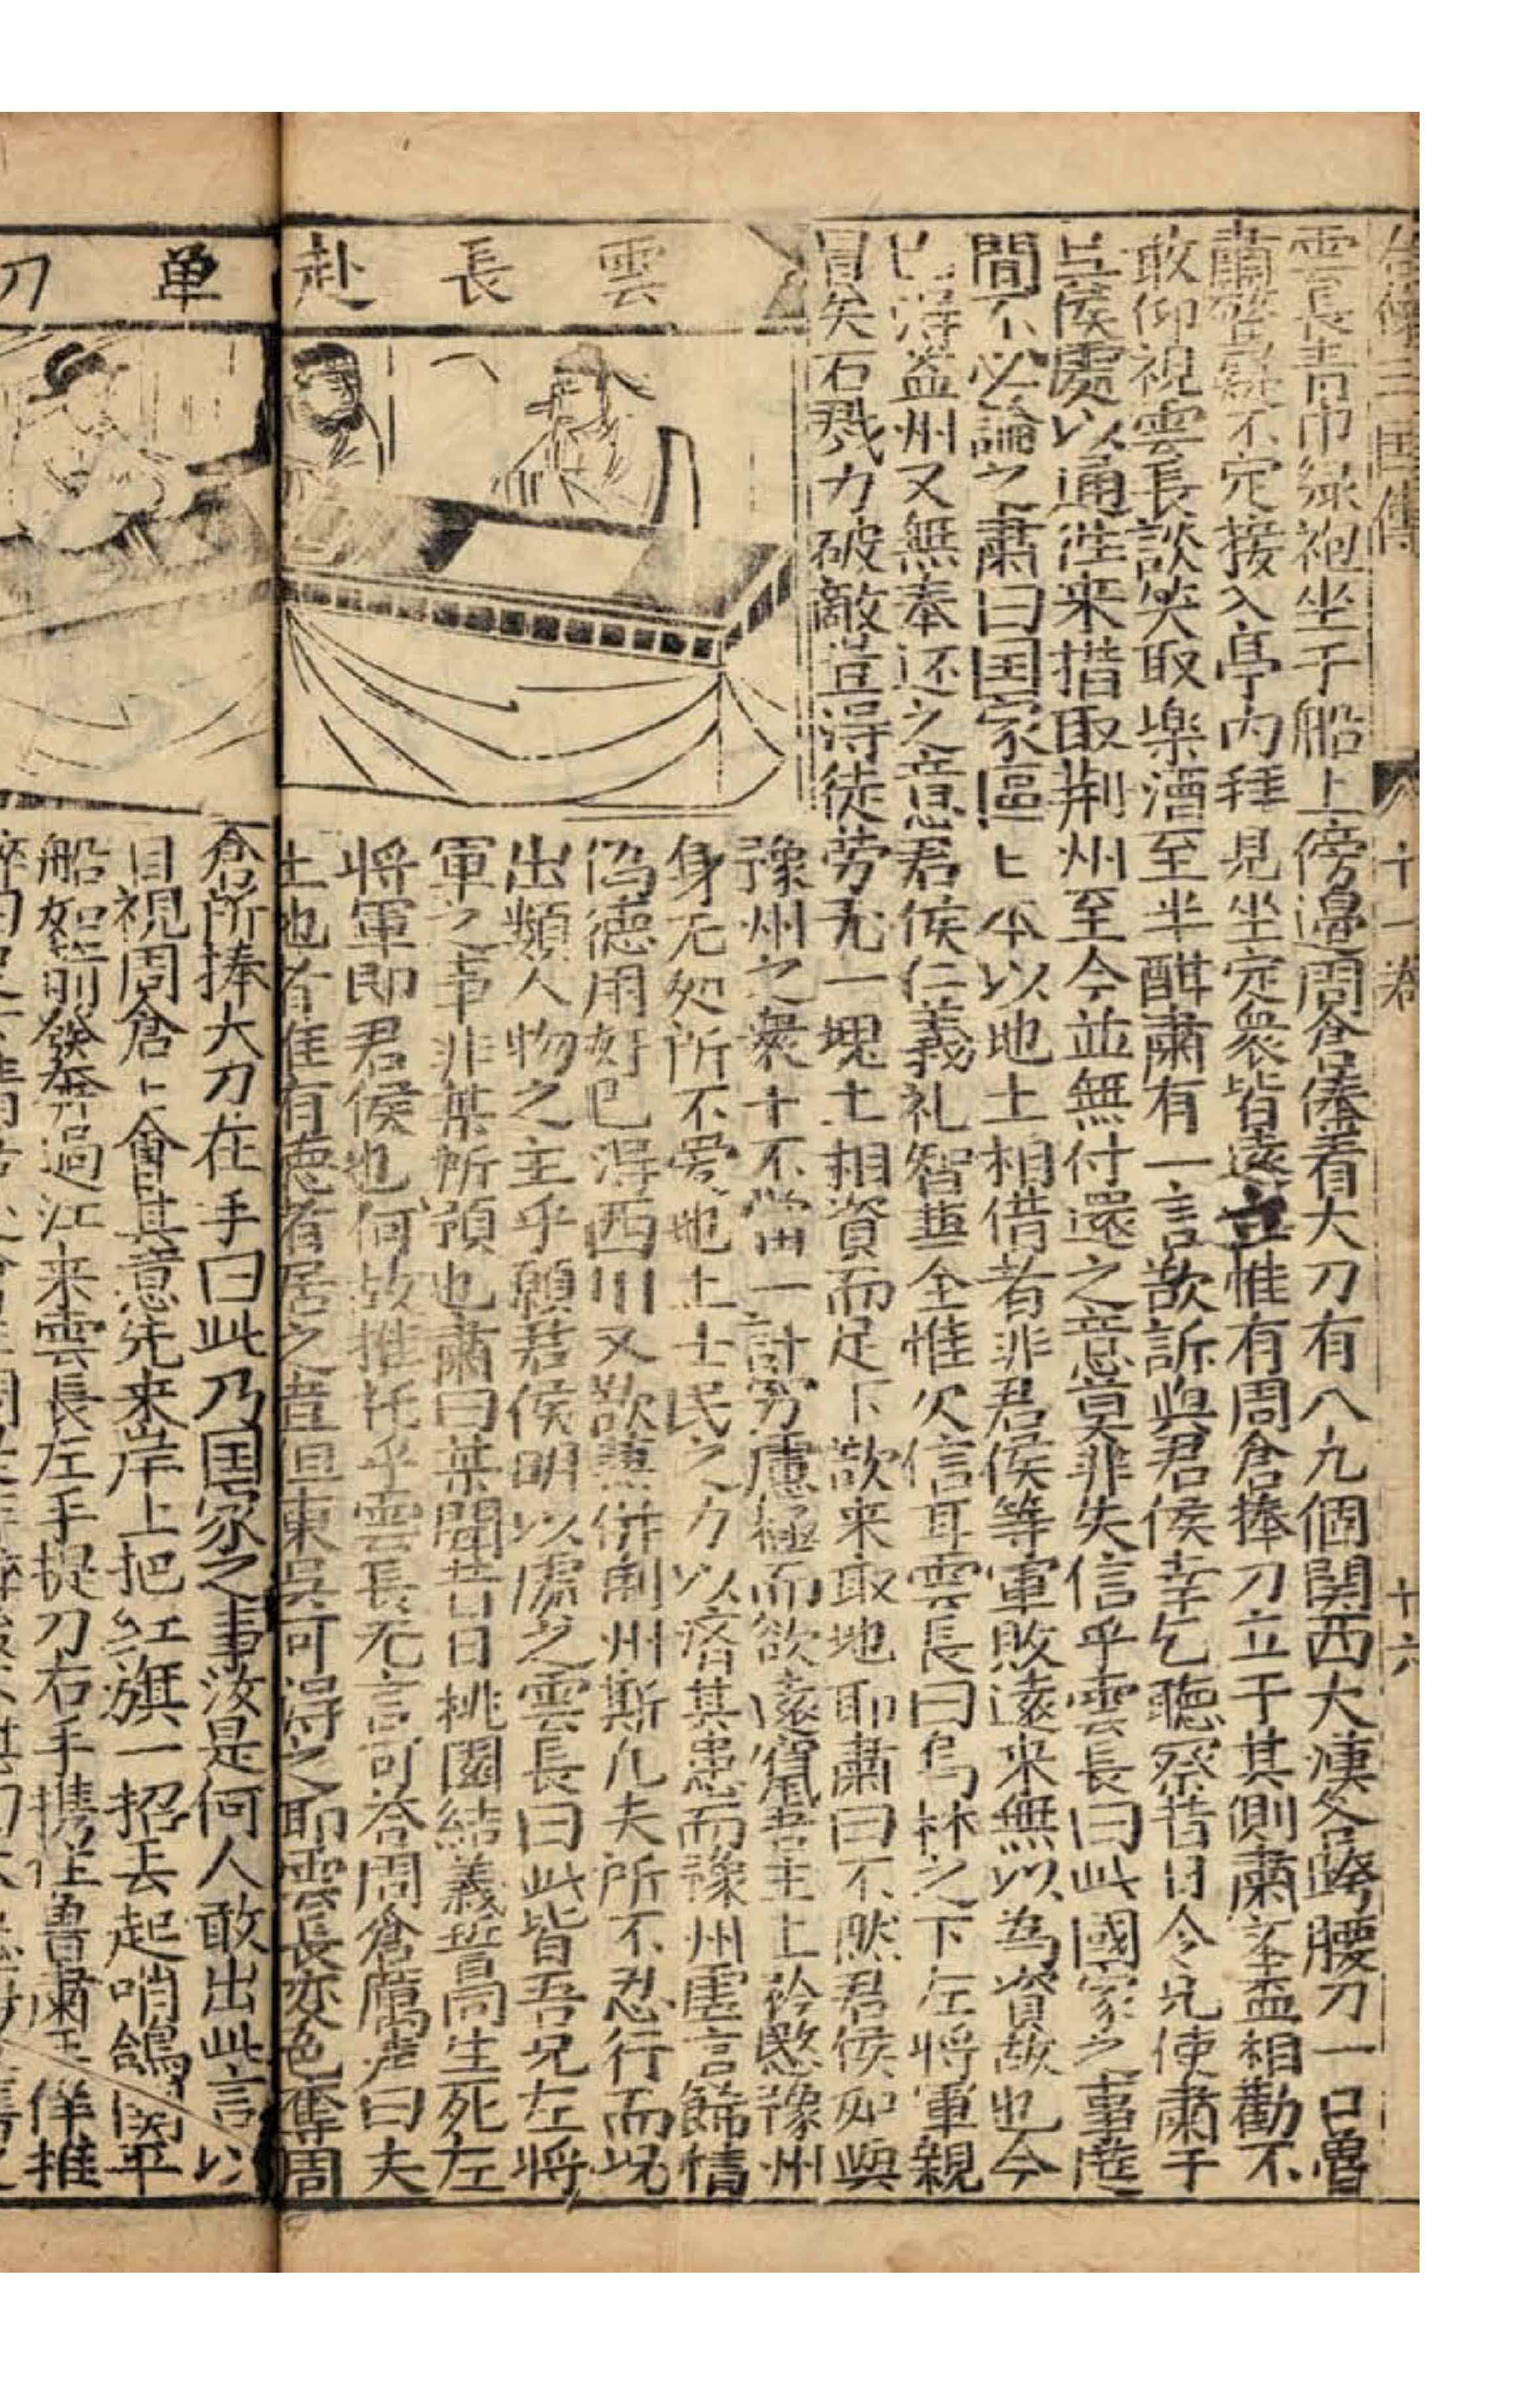 三国傳 十一卷 十六
雲長青巾綠袍坐于船上傍邊周倉捧着大刀有八九個関西大漢各跨腰刀一口魯
肅驚疑不定接入亭内拜見坐定衆皆遠立惟有周倉捧刀立于其側肅举盃相勸不
敢仰視雲長談笑取樂酒至半酣肅有一言欲訴與君侯幸乞聽察昔日令兄使肅于
吳侯處以通往来措取荆州至今並無付還之意莫非失信乎雲長曰此國家之事筵
間不必論之肅曰国家區匕本以地土相借者非君侯等軍敗遠来無以為資故也今
已淂益州又無奉还之意君侯仁義礼智與全惟欠信耳雲長曰烏林之下左将軍親
冒矢石戮力破敵豈淂徒劳无一塊土相資而足下欲来取地耶肅曰不然君侯如與
豫州之衆十不當一計穷慮極而欲遠竄吾主上矜愍豫州
身无处所不爱地土士民之力以济其患而豫州虚言餙情
僞德用好已淂西川又欲兼併荆州斯凢夫所不忍行而况
出類人物之主乎願君侯明以處之雲長曰此皆吾兄左将
軍之事非某所預也肅曰某聞昔日桃園結義誓同生死左
将軍即君侯也何故推托乎雲長无言可答周倉厲声曰夫
土地者惟有德者居之豈但東吳可淂之耶雲長亦色奪周
雲長赴
倉所捧大刀在手曰此乃国家之事汝是何人敢出此言以
目視周倉匕會其意先来岸上把红旗一招去起哨鴿関平
船如箭發奔過江来雲長左手提刀右手携住魯肅手佯推
单刀